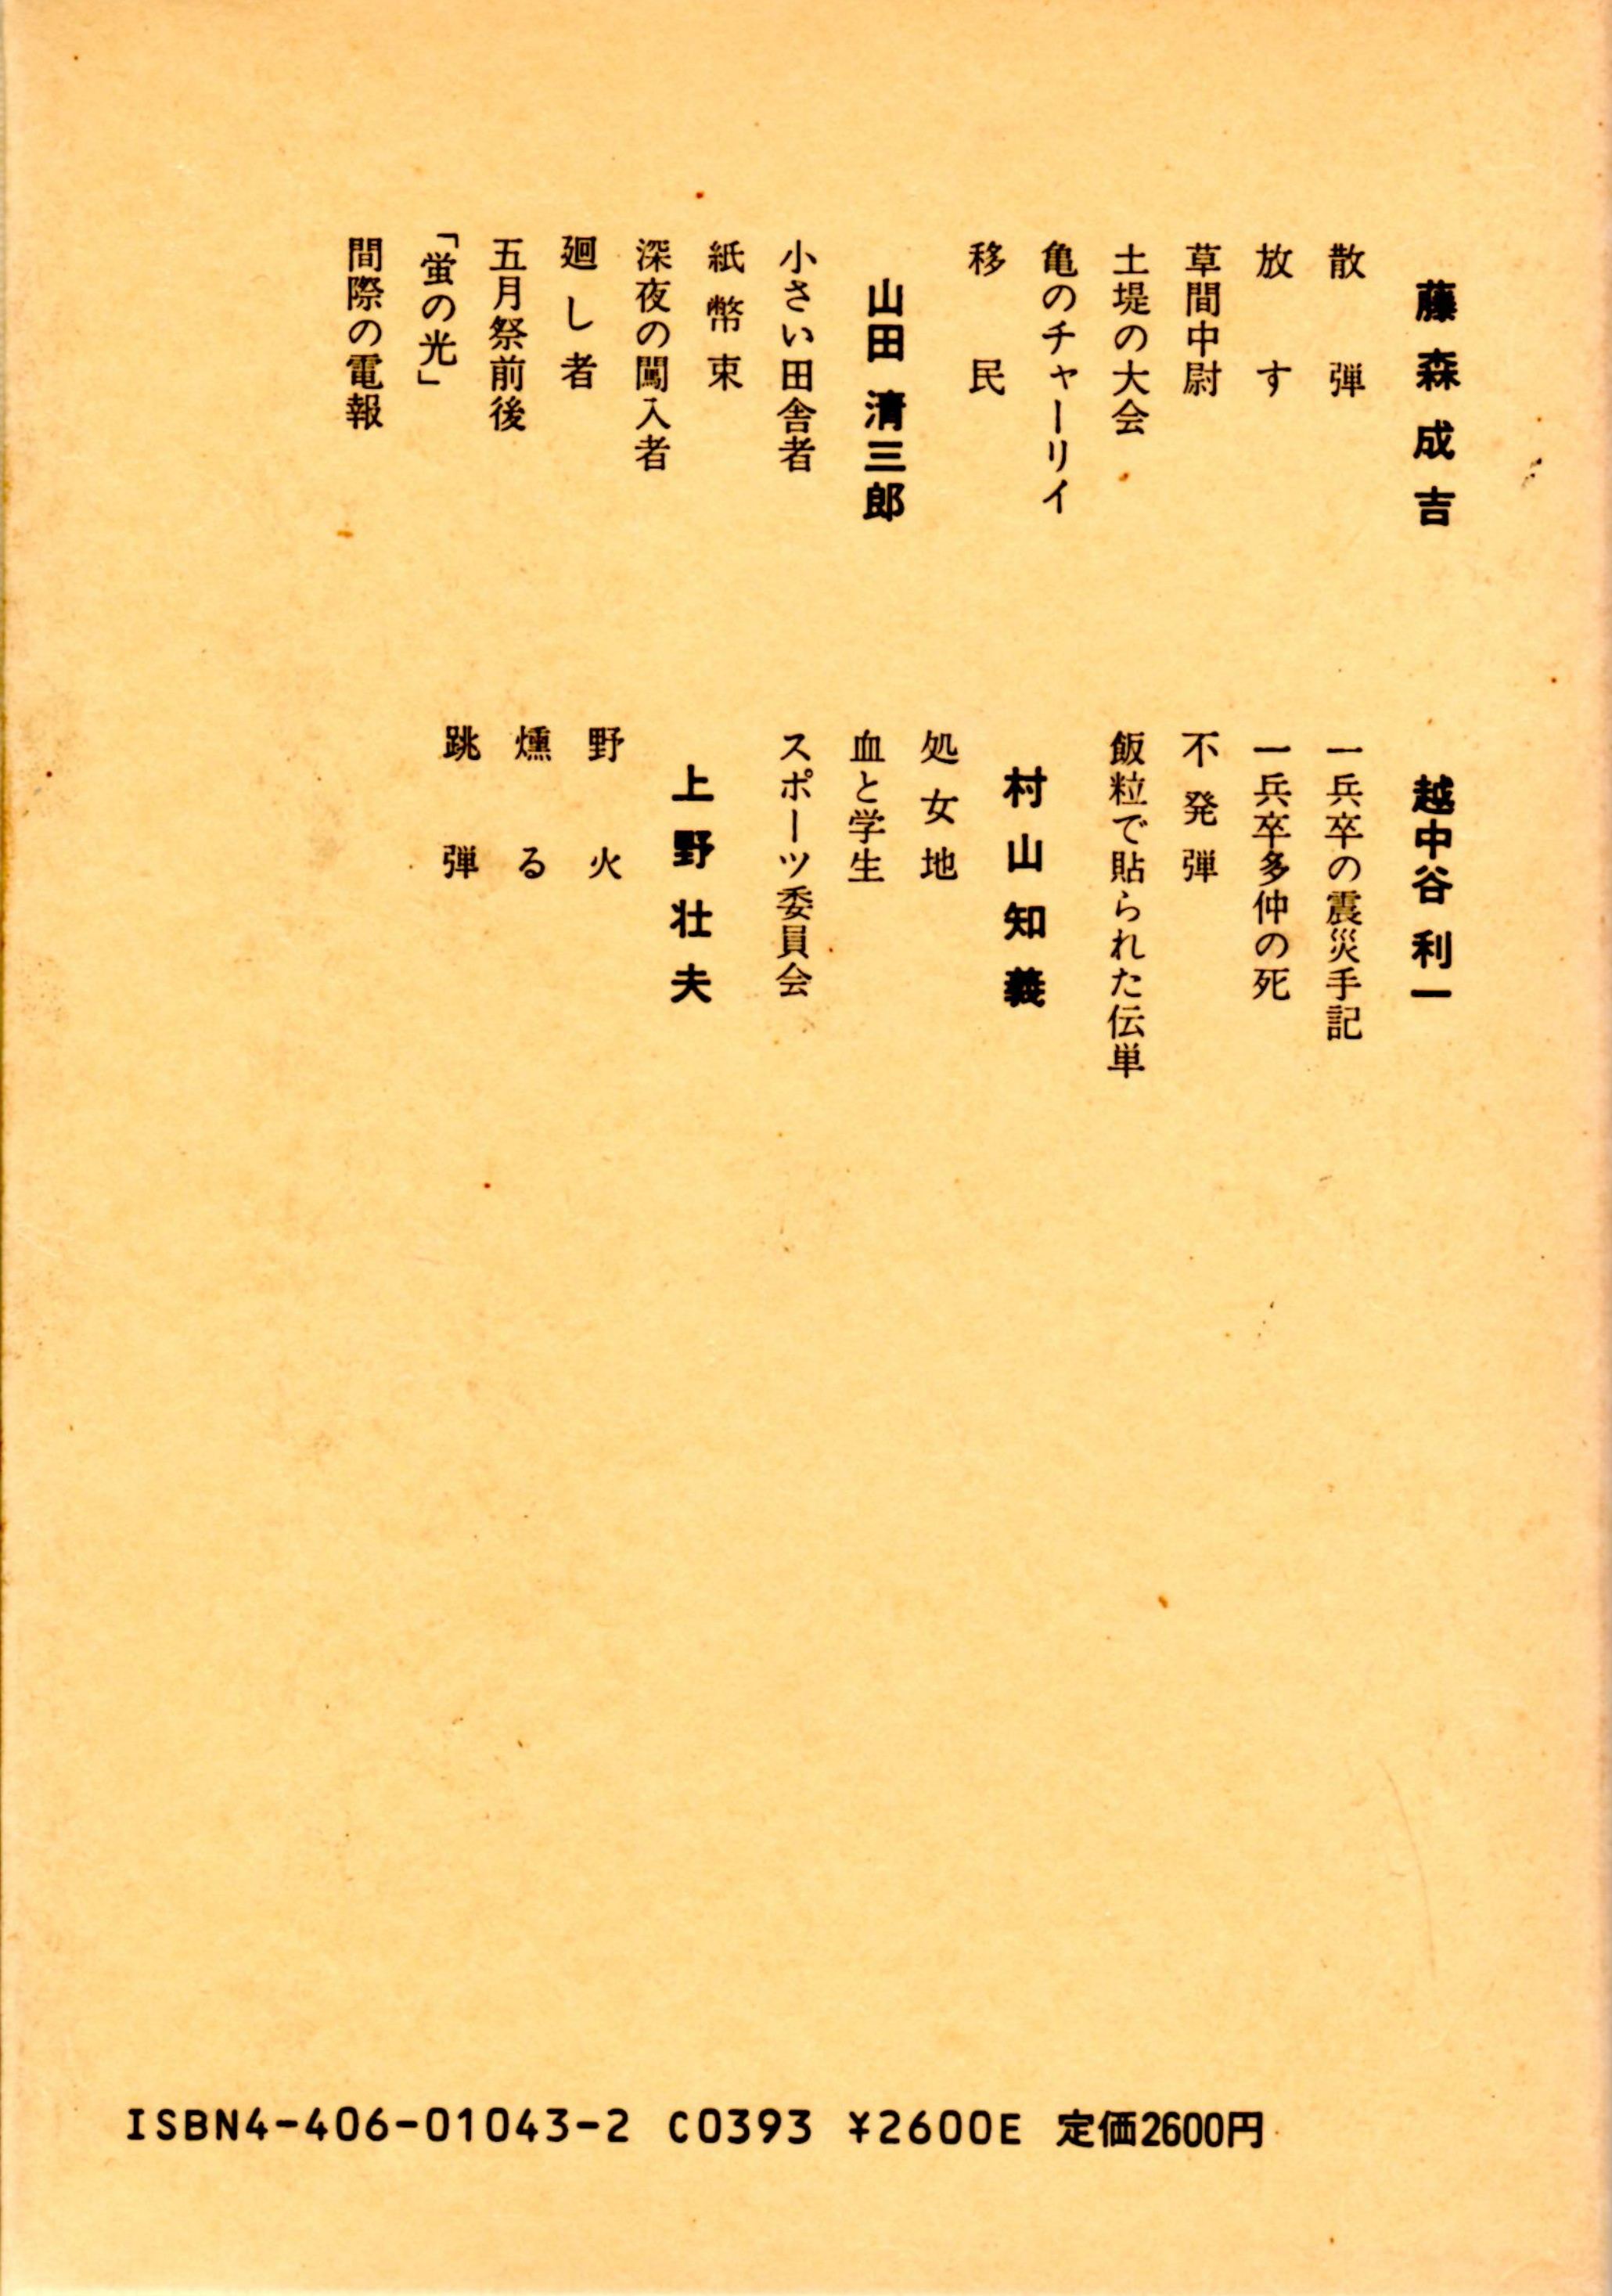 藤森成吉
散弾
放す
草間中尉
土堤の大会
亀のチャーリイ
移民
山田清三郎
小さい田舎者
紙幣束
深夜の闖入者
廻し者
五月祭前後
「蛍の光」
間際の電報
越中谷利一
一兵卒の震災手記
一兵卒多仲の死
不発弾
飯粒で貼られた伝単
村山知義
処女地
血と学生
スポーツ委員会
上野壮夫
野火
燻る
跳弾
ISBN4-406-01043-2 C0393 ¥2600E 定価2600円